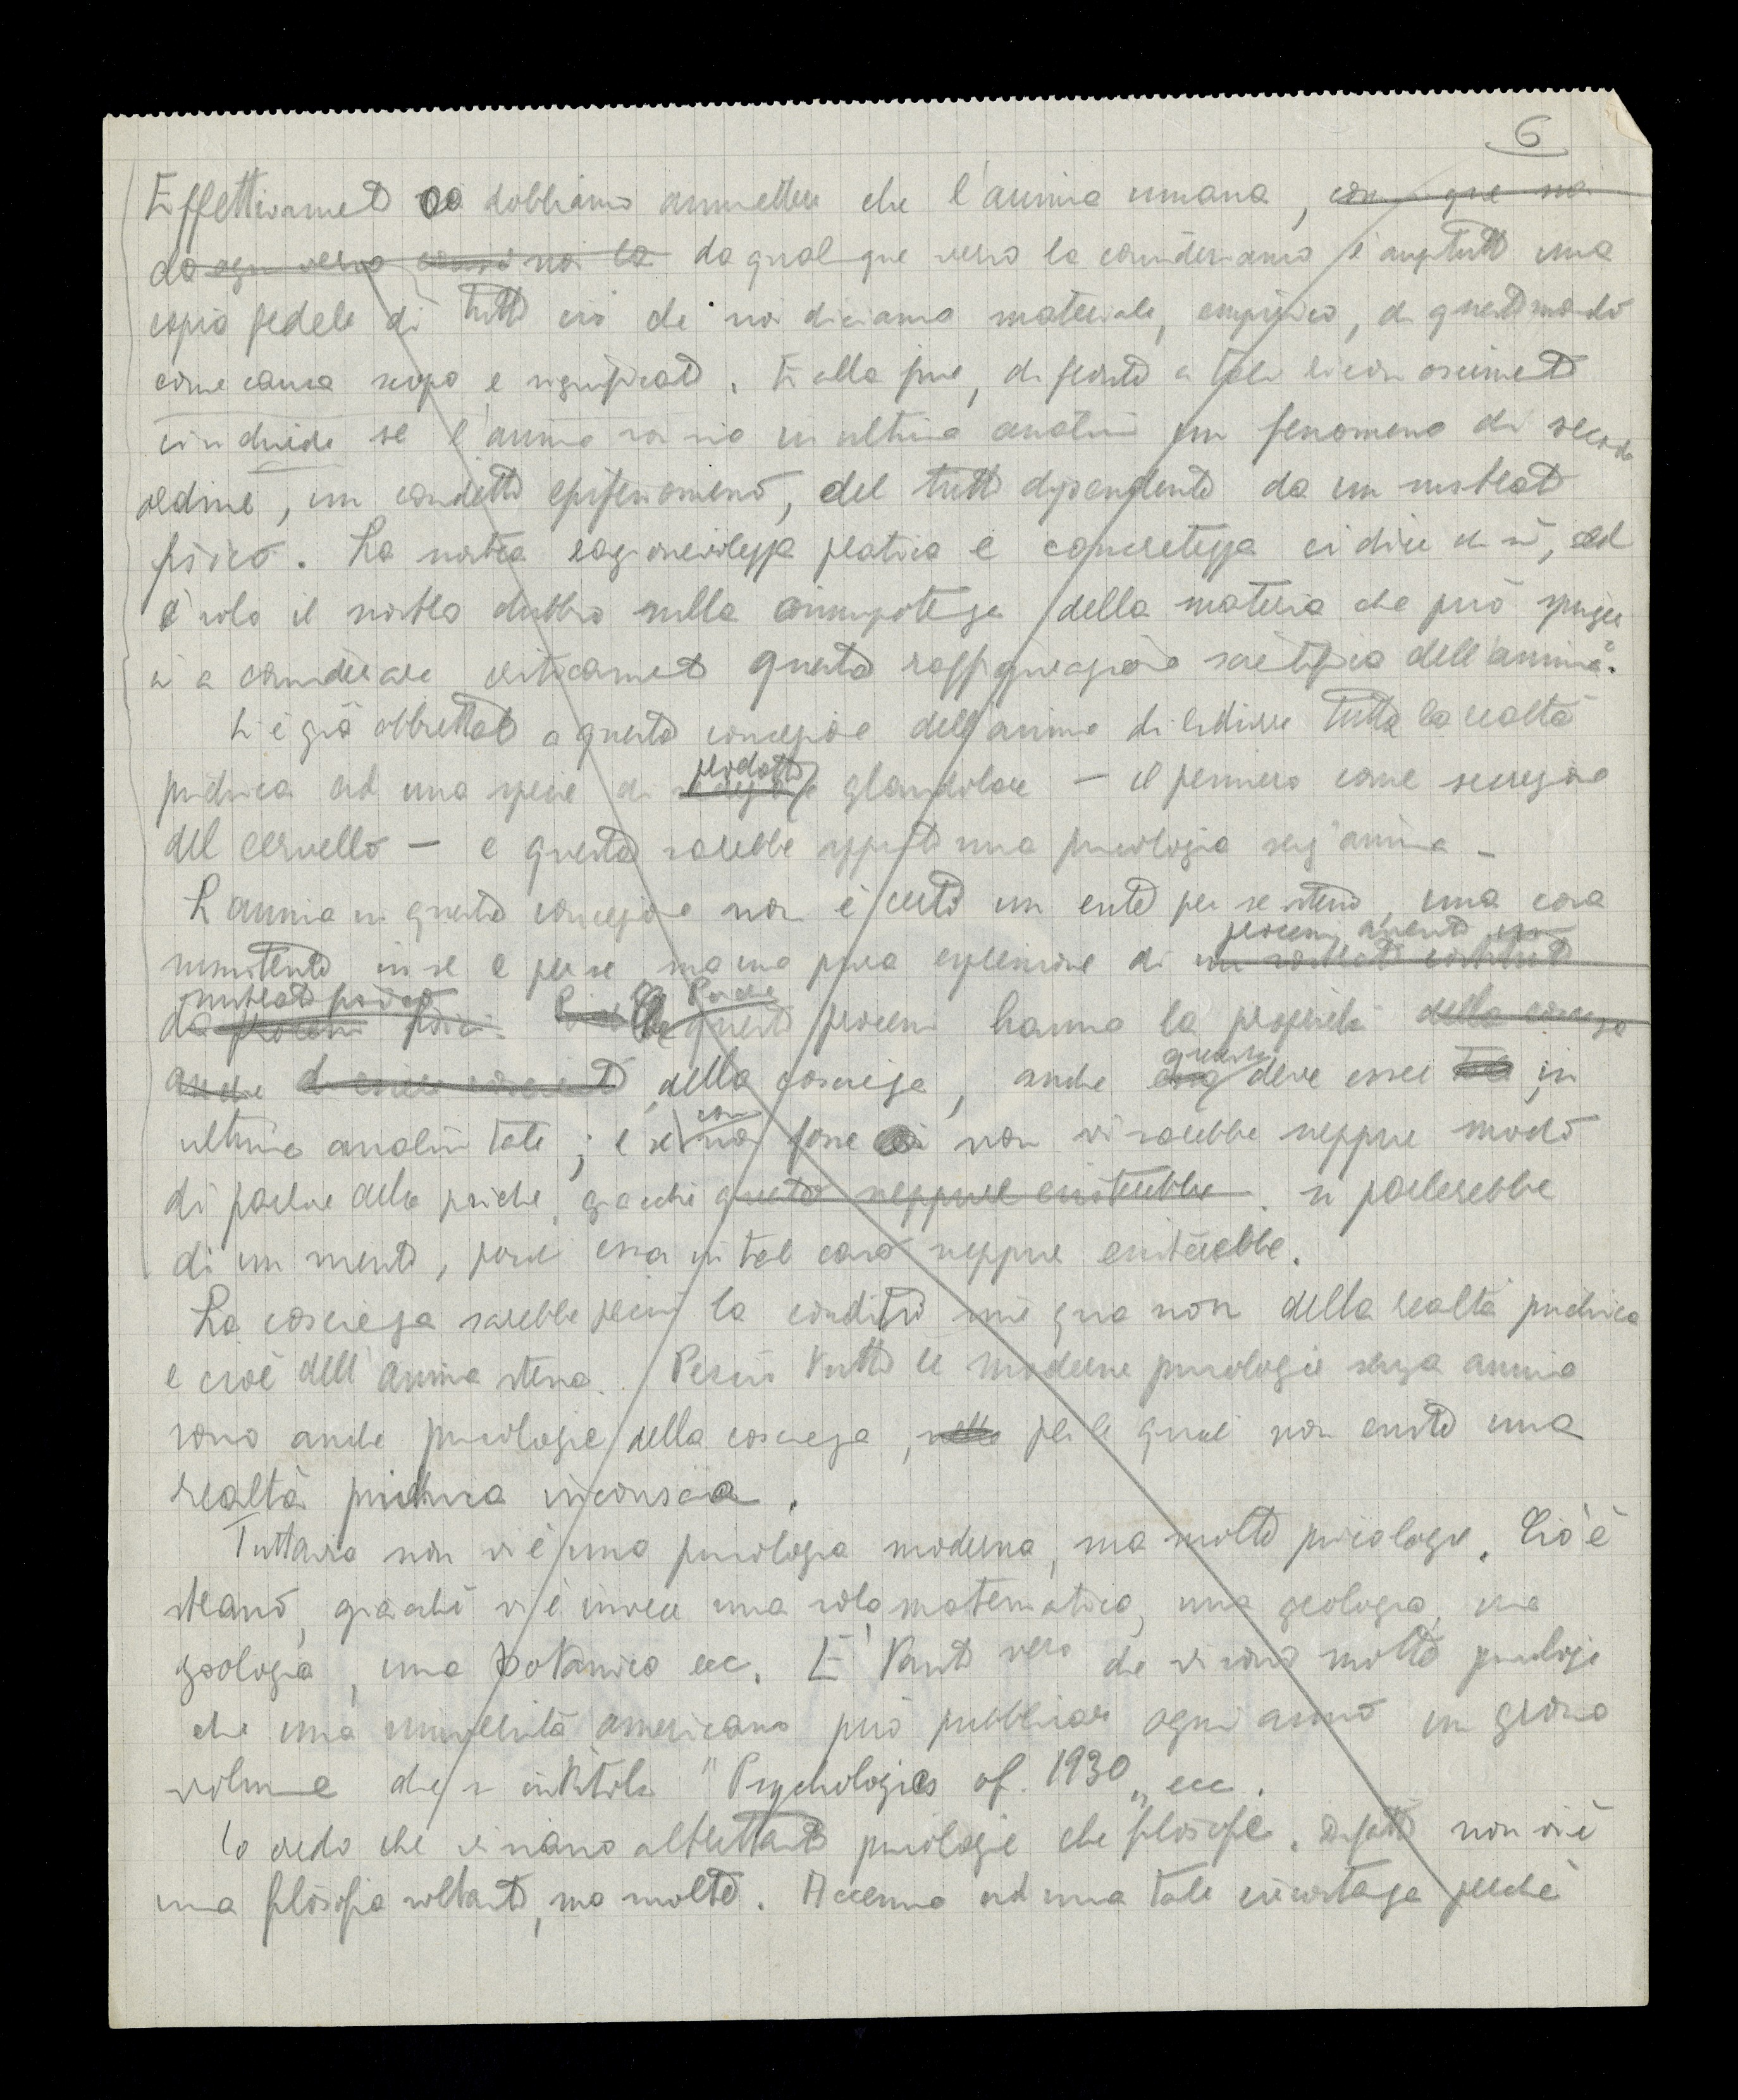 6
Effettivament dobbiamo ammettere che l'anima umana, 
da ogni verso noi la da qualque verso la consideriamo è anztutt una
copia fedele di tutto ciò che noi diciamo materiale, empirico, di questo mondo
come causa scopo e significato. E alla fine, di fronte a tale riconosciment
ci si chiede se l'anima non sia in ultima analisi un fenomeno di secondo
ordine, un condetto epifenomeno, del tutto dipendente da un substrato
fisico. La nostra ragionevolezza pratica e concretezza ci dice di sì, ed
è solo il nostro dubbio sulla onnipotenza della materia che può spinger
ci a considerare criticament questa raffigurazione scientifica dell'anima.
Si è già obbiettato a questa concezione dell'anima di ridurre tutta la realtà
psichica ad una specie di prodotto glandolare — il pensiero come secrezione
del cervello — e questa sarebbe appunto una psicologia senz'anima —
L'anima in questa concezione non è certo un ente per se stesso, una cosa
sussistente in sé e per sé, ma una pura espressione di processi un substrato costituito
substrato fisico
da processi fisici. Poiché questi processi hanno la proprietà della coscienza
anche di essere della coscienza, anche questa deve esser tale in
ultima analisi tale; e se così non fosse non vi sarebbe neppure modo
di parlare della psiche, giacché questa neppure esisterebbe. si parlerebbe
di un niente, perché essa in tal caso neppure esisterebbe.
La coscienza sarebbe perciò la conditio sine qua non della realtà psichica
e cioè dell'anima stessa. Perciò tutte le moderne psicologie senza anima
sono anche psicologie della coscienza, nelle per le quali non esiste una
realtà psichica inconscia.
Tuttavia non vi è una psicologia moderna, ma molte psicologie. Ciò è
strano, giacché vi è invece una sola matematica, una geologia, una
zoologia, una botanica ecc. E' tanto vero che vi sono molte psicologie
che una università americana può pubblicare ogni anno un grosso
volume che si intitola "Psychologies of. 1930„ ecc.
Io credo che vi siano altrettante psicologie che filosofie. Difatti non vi è
una filosofia soltanto, ma molte. Accenno ad una tale circostanza perché